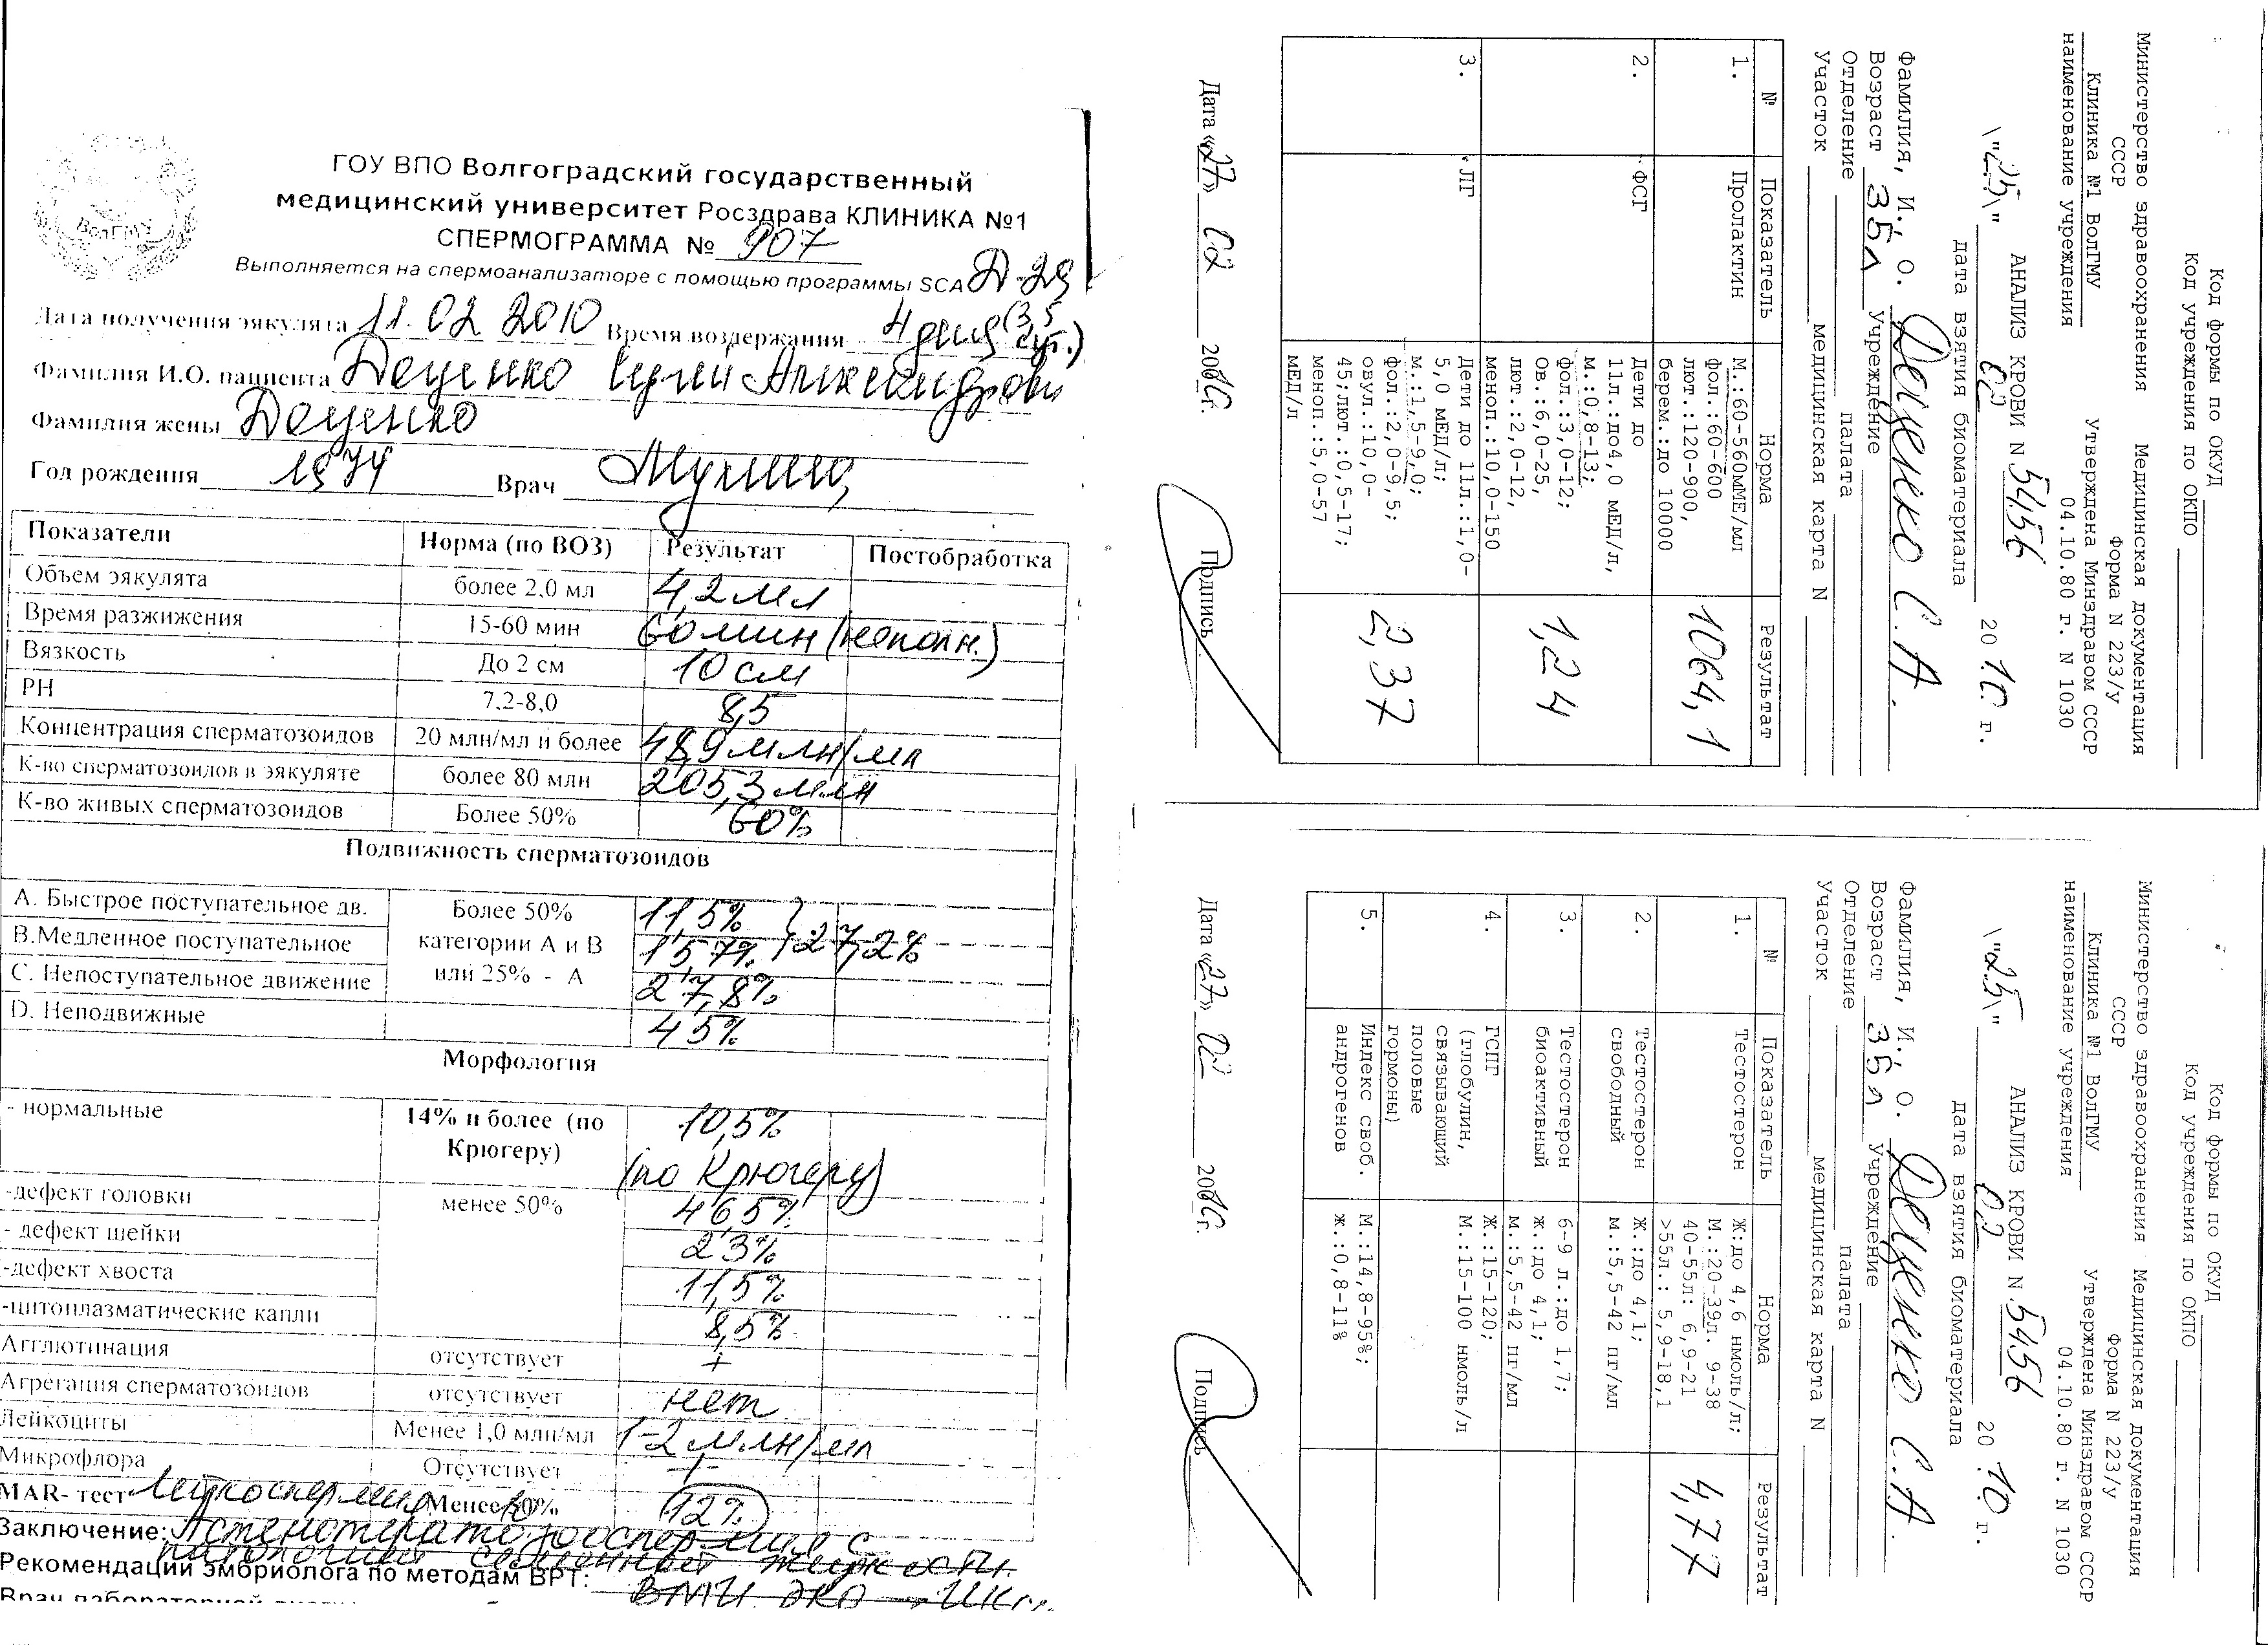 ГОУ ВПО Волгоградский государственный
медицинский университет Росздрава КЛИНИКА №1
СПЕРМОГРАММА № 907
Выполняется на спермоанализаторе с помощью программы SCA Д-29
ВолГМУ
Дата получения эякулята 11.02 2010 Время воздержания 4 дня (3,5 сут.)
Фамилия И.О. пациента Доценко
Фамилия жены Доценко
Год рождения 1974 Врач
Показатели Норма (по ВОЗ) Результат Постобработка
Объем эякулята более 2,0 мл 4,2 мл
Время разжижения 15-60 мин 60 мин (неполн.)
Вязкость До 2 см 10 см
РН 7.2-8,0 8,5
Концентрация сперматозоидов 20 млн/мл и более 48,9 млн/мл
К-во сперматозоидов в эякуляте более 80 млн 205,3 млн
К-во живых сперматозоидов Более 50% 60%
Подвижность сперматозоидов
А. Быстрое поступательное дв. Более 50% 11,5%
В.Медленное поступательное категории А и В 15,7% 27,2%
С. Непоступательное движение или 25% - А 27,8%
D. Неподвижные 45%
Морфология
- нормальные 14% и более (по Крюгеру) 10,5% (по Крюгеру)
-дефект головки менее 50% 46,5%
- дефект шейки 23%
-дефект хвоста 11,5%
-цитоплазматические капли 8,5%
Агглютинация отсутствует +
Агрегация сперматозоидов отсутствует нет
Лейкоциты Менее 1,0 млн/мл 1-2 млн/мл
Микрофлора Отсутствует +
MAR- тест Менее 12%
Заключение: Астенотератозооспермия с
патологией семенной жидкости.
Рекомендации эмбриолога по методам ВРТ: ВМИ ЭКО
Код формы по ОКУД
Код учреждения по ОКПО
Министерство здравоохранения Медицинская документация
СССР Форма N 223/у
Клиника №1 ВолГМУ Утверждена Минздравом СССР
наименование учреждения 04.10.80 г. N 1030
АНАЛИЗ КРОВИ N 5456
\"25\" 02 20 10 г.
дата взятия биоматериала
Фамилия, И., О. Доценко С.А.
Возраст 35л Учреждение
Отделение палата
Участок медицинская карта N
№ Показатель Норма Результат
1. Пролактин М.:60-560мМЕ/мл
фол.:60-600
лют.:120-900,
берем.:до 10000 1064,1
2. ФСГ Дети до
11л.:до4,0 мЕД/л,
м.:0,8-13;
фол.:3,0-12;
Ов.:6,0-25,
лют.:2,0-12,
меноп.:10,0-150 1,24
3. ЛГ Дети до 11л.:1,0-
5,0 мЕД/л;
м.:1,5-9,0;
фол.:2,0-9,5;
овул.:10,0-
45;лют.:0,5-17;
меноп.:5,0-57
мЕД/л 2,37
Дата «27» 02 2010г. Подпись
Код формы по ОКУД
Код учреждения по ОКПО
Министерство здравоохранения Медицинская документация
СССР Форма N 223/у
Клиника №1 ВолГМУ Утверждена Минздравом СССР
наименование учреждения 04.10.80 г. N 1030
АНАЛИЗ КРОВИ N 5456
\"25\" 02 20 10 г.
дата взятия биоматериала
Фамилия, И., О. Доценко С.А.
Возраст 35л Учреждение
Отделение палата
Участок медицинская карта N
№ Показатель Норма Результат
1. Тестостерон Ж:до 4,6 нмоль/л;
М.:20-39л. 9-38
40-55л: 6,9-21
>55л.: 5,9-18,1 4,77
2. Тестостерон
свободный Ж.:до 4,1;
м.:5,5-42 пг/мл
3. Тестостерон
биоактивный 6-9 л.:до 1,7;
ж.:до 4,1;
м.:5,5-42 пг/мл
4. ГСПГ
(глобулин,
связывающий
половые
гормоны) Ж.:15-120;
М.:15-100 нмоль/л
5. Индекс своб.
андрогенов М.:14,8-95%;
ж.:0,8-11%
Дата «27» 02 2010г. Подпись